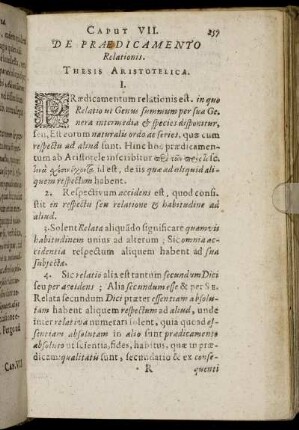 CAPUT VII. 257
DE PRÆDICAMENTO
Relationis.
THESIS ARISTOTELICA.
I.
PRædicamentum relationis est, in quo
Relatio ut Genus summum per sua Ge-
nera intermedia & species disponitur,
seu, Est eorum naturalis ordo ac series, quæ cum
respectu ad aliud sunt. Hinc hoc prædicamen-
tum ab Aristotele inscribitur
id est, de iis quæ ad aliquid ali-
quem respectum habent.
2. Respectivum accidens est, quod consi-
stit in respectu seu relatione & habitudine ad
aliud.
3. Solent Relata aliquando significare quamvis
habitudinem unius ad alterum; Sic omnia ac-
cidentia respectum aliquem habent ad sua
subjecta.
4. Sic relatio alia est tantum secundum Dici
seu per accidens; Alia secundum esse & per SE.
Relata secundum Dici præter essentiam absolu-
tam habent aliquem respectum ad aliud, unde
inter relativa numerari solent, quia quoad es-
sentiam absolutam in alio sunt prædicamento
absoluto ut scientia, fides, habitus, quæ in præ-
dicam: qualitatis sunt, secundariò & ex conse-
R quenti
Cap. VII